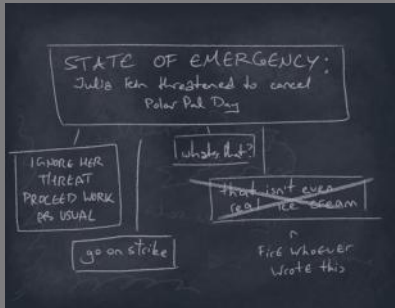 STATE OF EMERGENCY:
Julia threatened to cancel
Polar Pal Day
IGNORE HER
THREAT
PROCEED WORK
AS USUAL
what's that?
that isn't even
real ice cream
go on strike
Fire whoever
wrote this